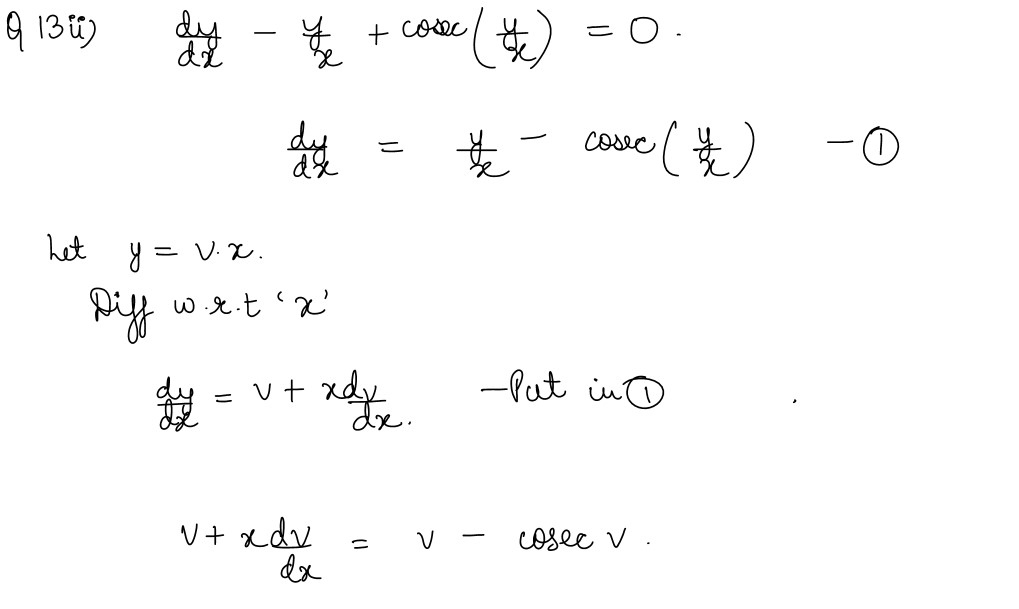 Q 13 ii) dy/dx - y/x + cosec(y/x) = 0.
dy/dx = y/x - cosec(y/x) - ①
Let y = v.x.
Diff w.r.t 'x'
dy/dx = v + xdv/dx. - Put in ①
v + xdv/dx = v - cosec v.